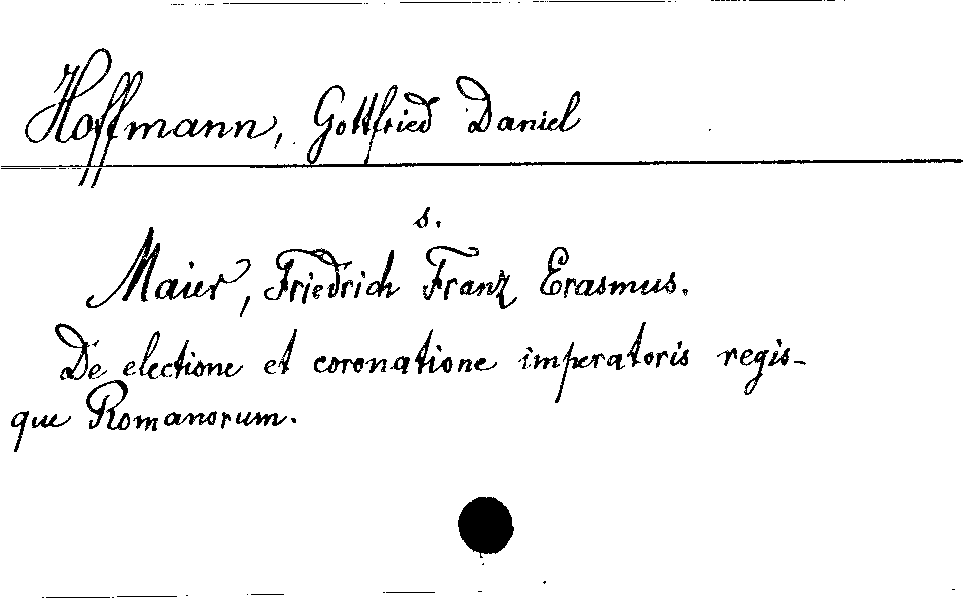 Hoffmann, Gottfried Daniel
s.
Maier, Friedrich Franz Erasmus.
De electione et coronatione imperatoris regis-
que Romanorum.